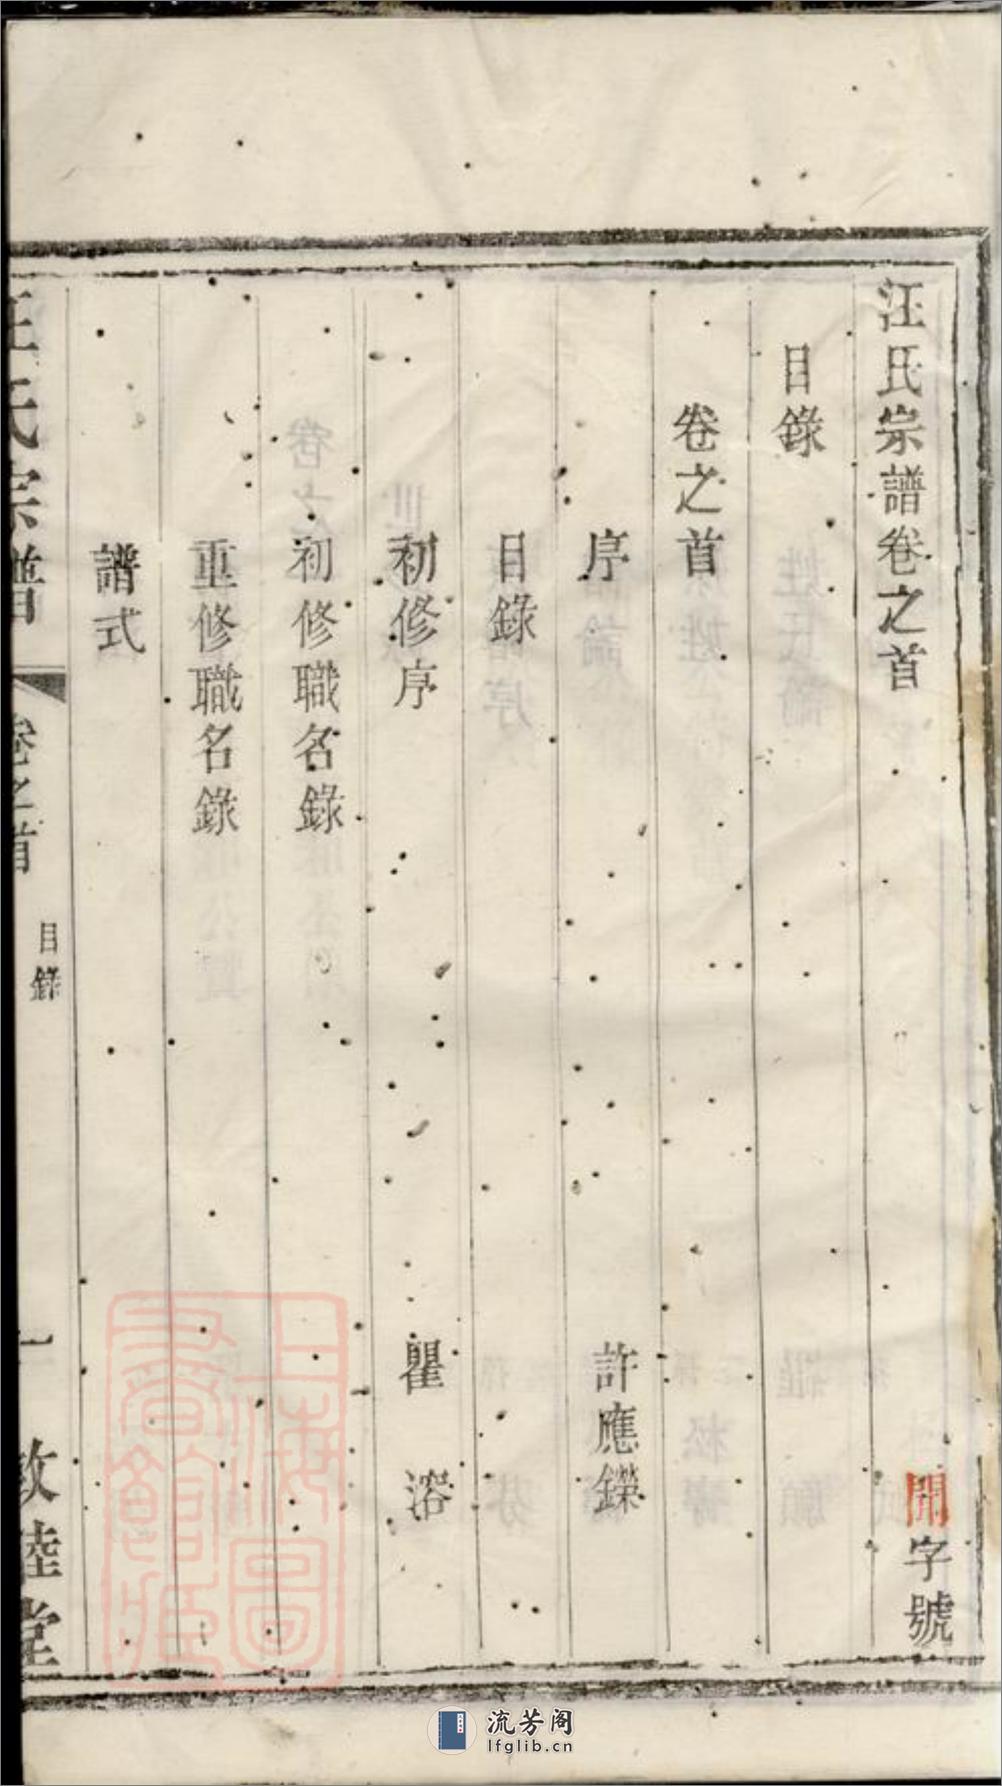 汪氏宗譜卷之首
開字號
目錄
卷之首
序
許應鑅
目錄
初修序
瞿溶
初修職名錄
重修職名錄
譜式
汪氏宗譜
卷之首
目錄
一
敦睦堂
上海圖書館藏
流芳阁
lfglib.cn